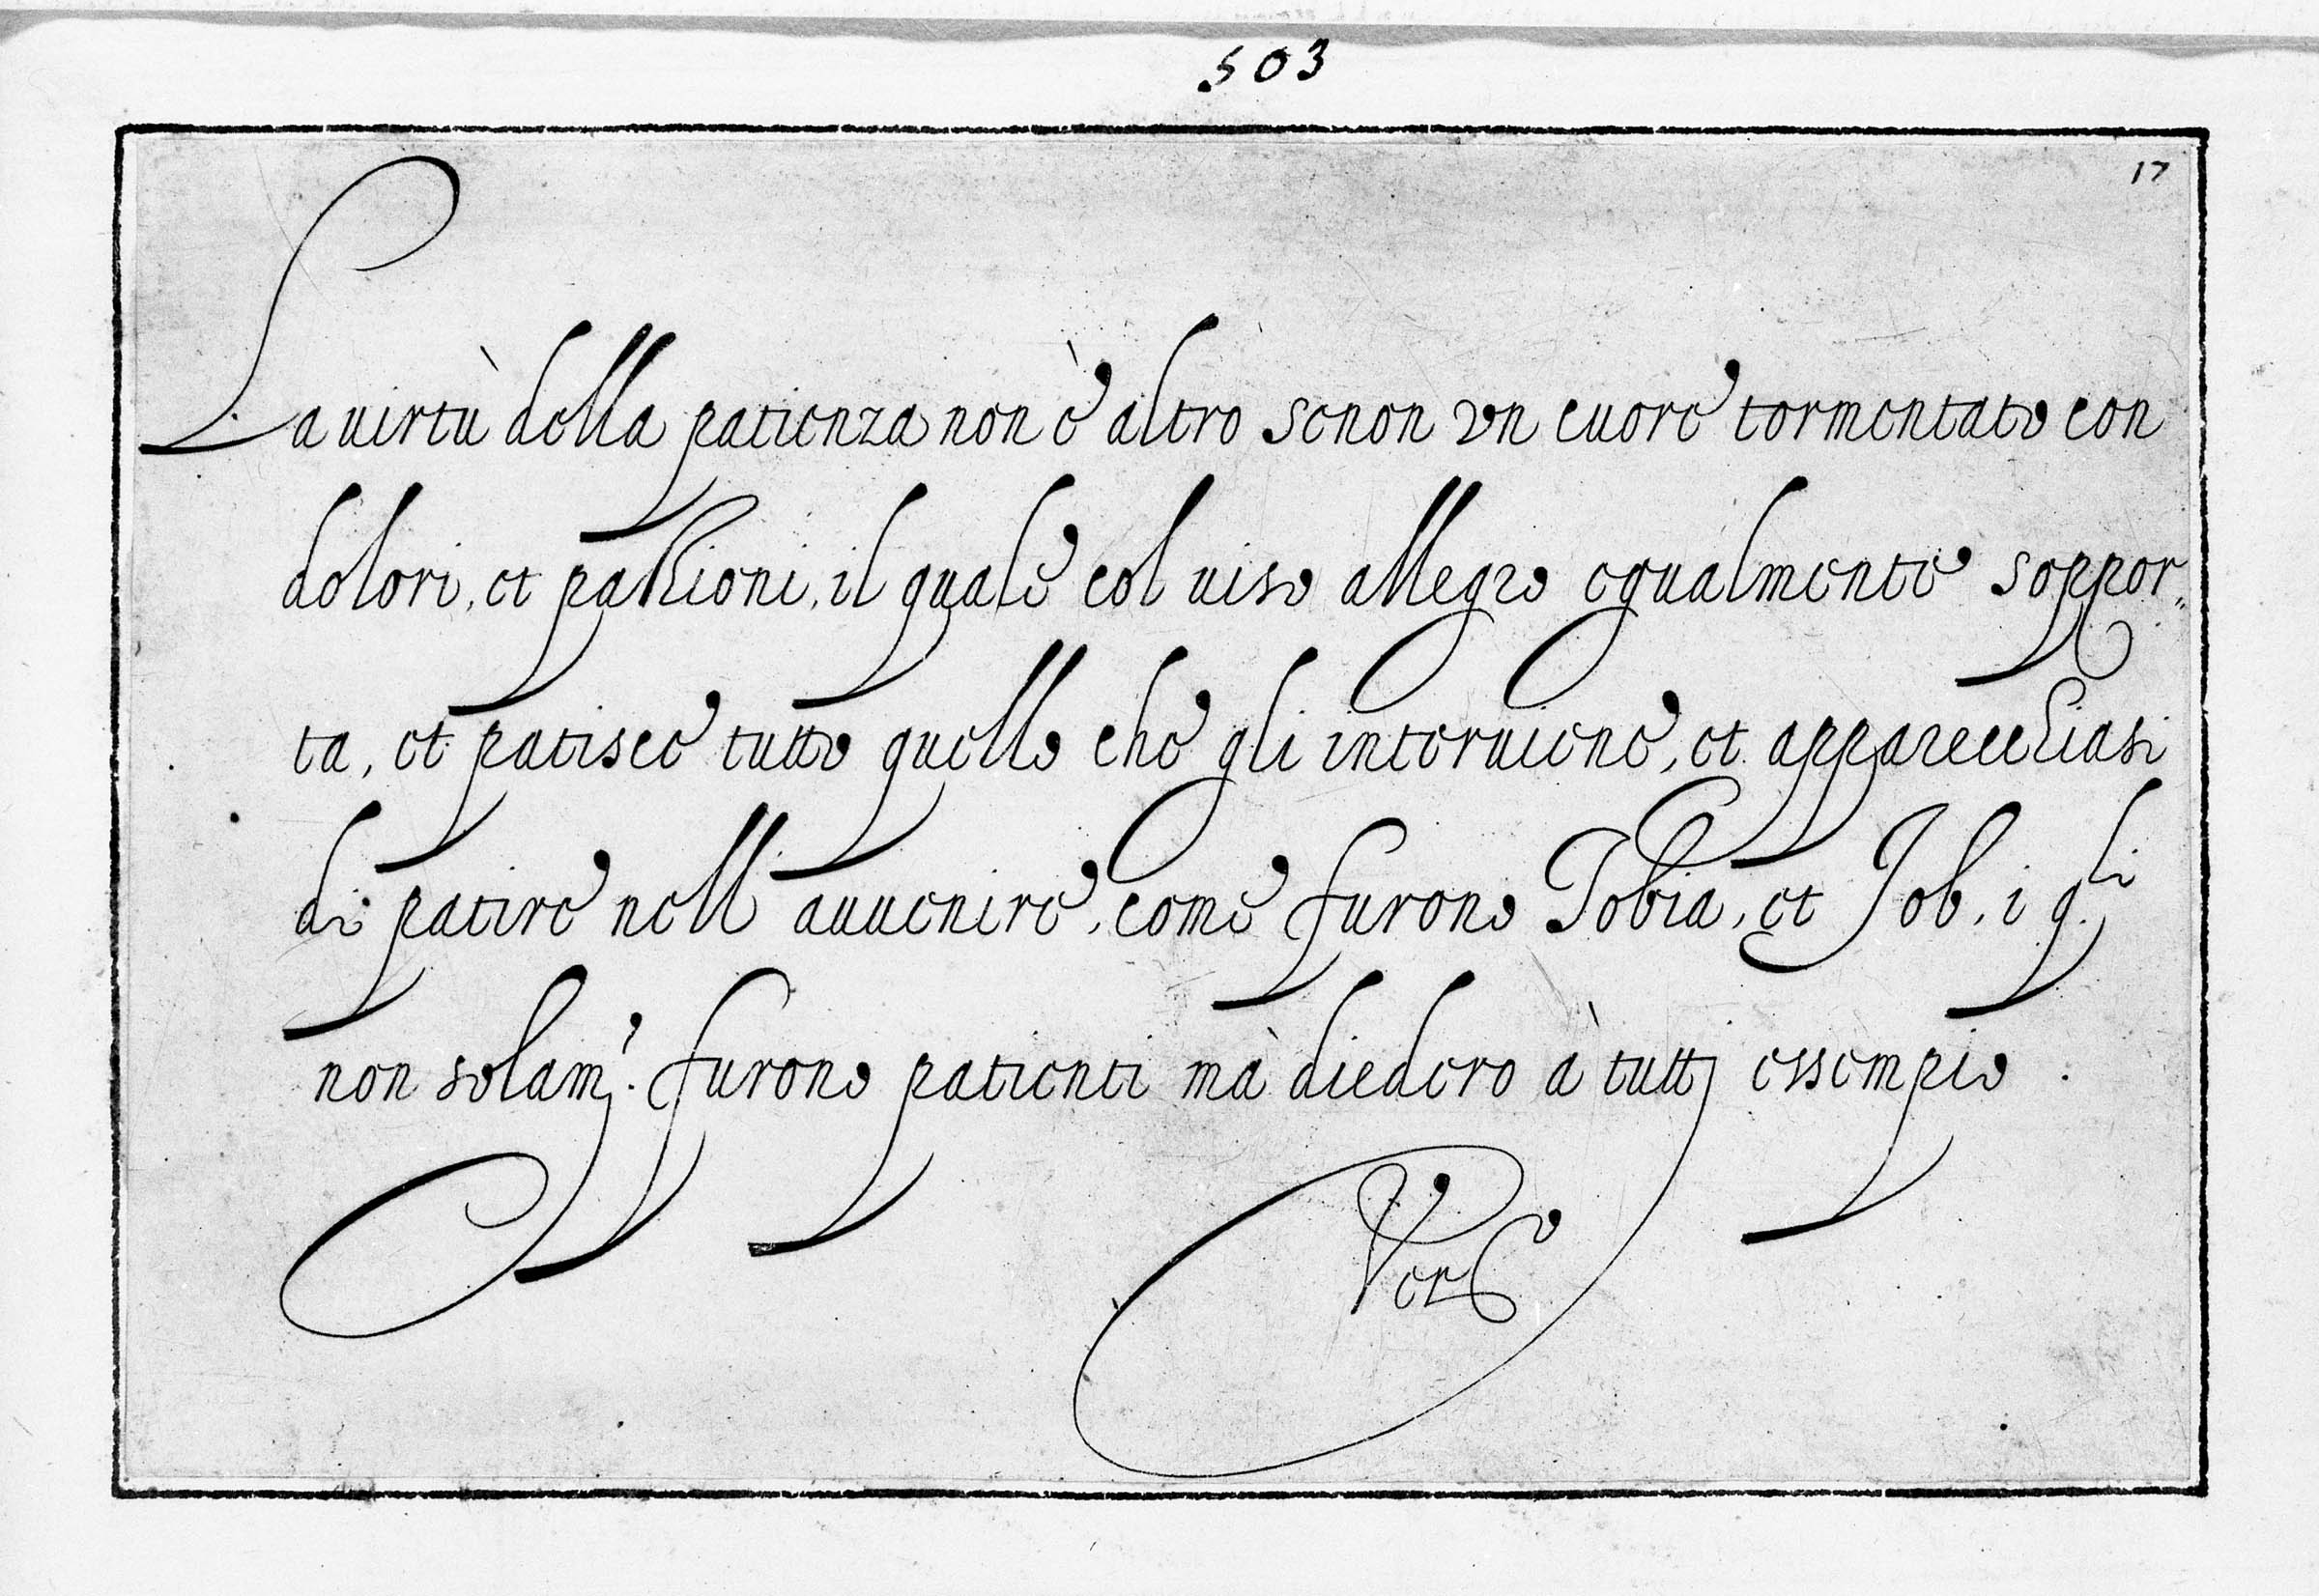 503
17
La uirtù della patienza non è altro senon vn cuore tormentato con
dolori, et passioni, il quale col uiso allegro egualmente soppor„
ta, et patisce tutto quello che gli interuiene, et apparecchiasi
di patire nell auuenire, come furono Tobia, et Job, i q.li
non solam.e furono patienti mà diedero à tutti essempio .